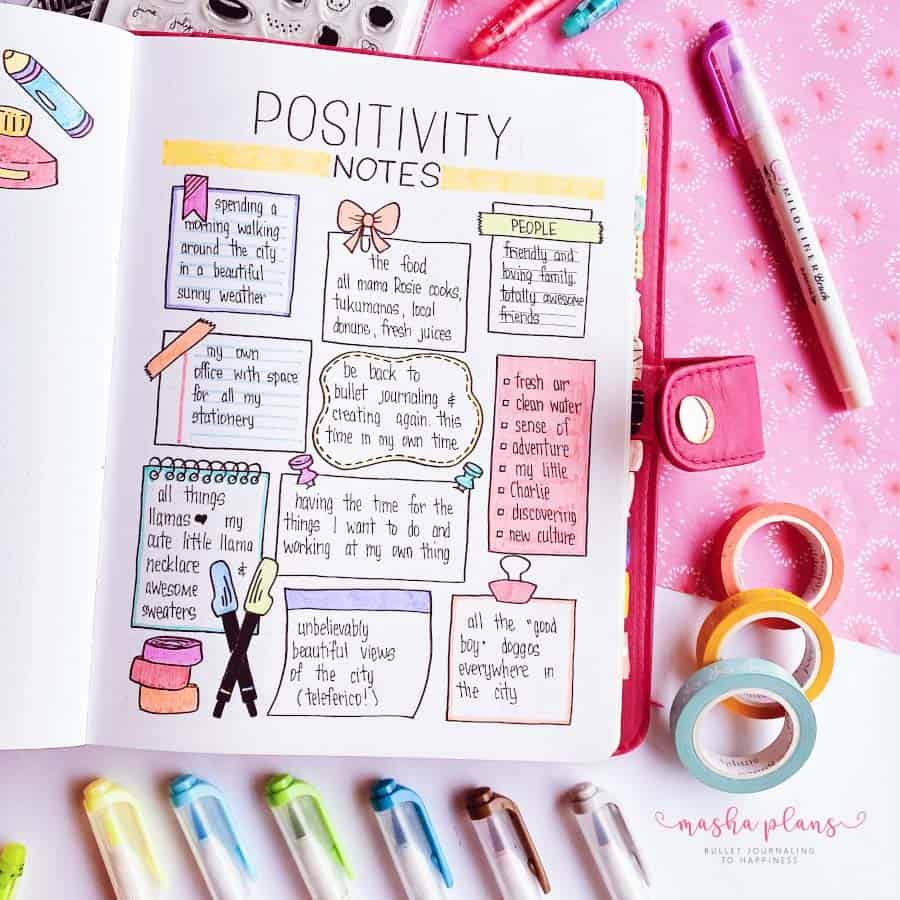 june
july
POSITIVITY
NOTES
spending a
morning walking
around the city
in a beautiful
sunny weather
the food
all mama Rosie cooks,
tukumanas, local
donune, fresh juices
PEOPLE
friendly and
loving family.
totally awesome
friends
my own
office with space
for all my
stationery
be back to
bullet journaling &
creating again. this
time in my own time.
▫ fresh air
▫ clean water
▫ sense of
▫ adventure
▫ my little
▫ Charlie
▫ discovering
▫ new culture
all things
llamas ❤ my
cute little llama
necklace &
awesome
sweaters
having the time for the
things I want to do and
working at my own thing
unbelievably
beautiful views
of the city
(teleferico!)
all the "good
boy" doggos
everywhere in
the city
MILDLINER Brush
masha plans
BULLET JOURNALING
TO HAPPINESS